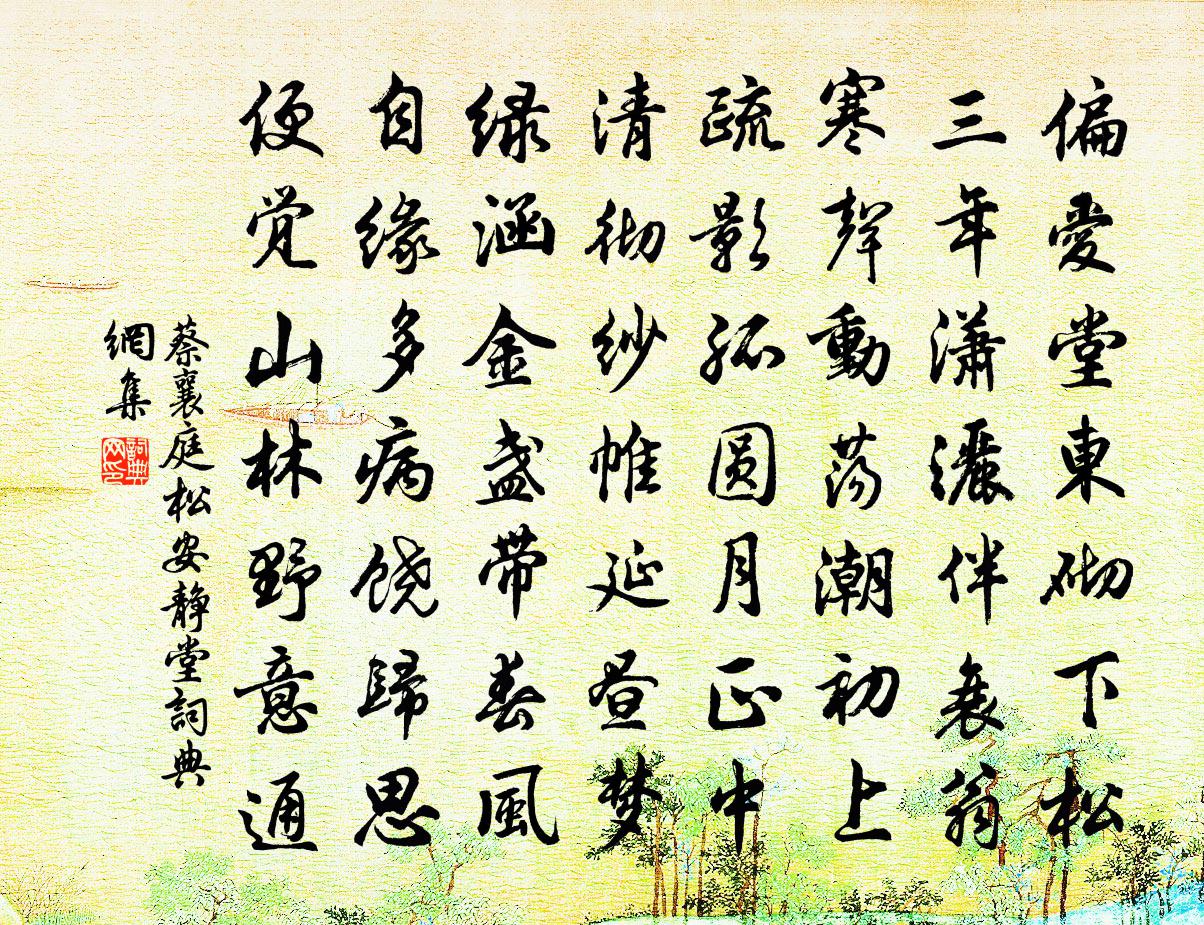 偏愛堂東砌下松
三年瀟灑伴衰翁
寒聲動荡潮初上
疏影孤圆月正中
清彻纱帷延昼梦
绿涵金盏带春風
自缘多病饶歸思
便觉山林野意通
蔡襄庭松安静堂詞典
網集
詞典
网印